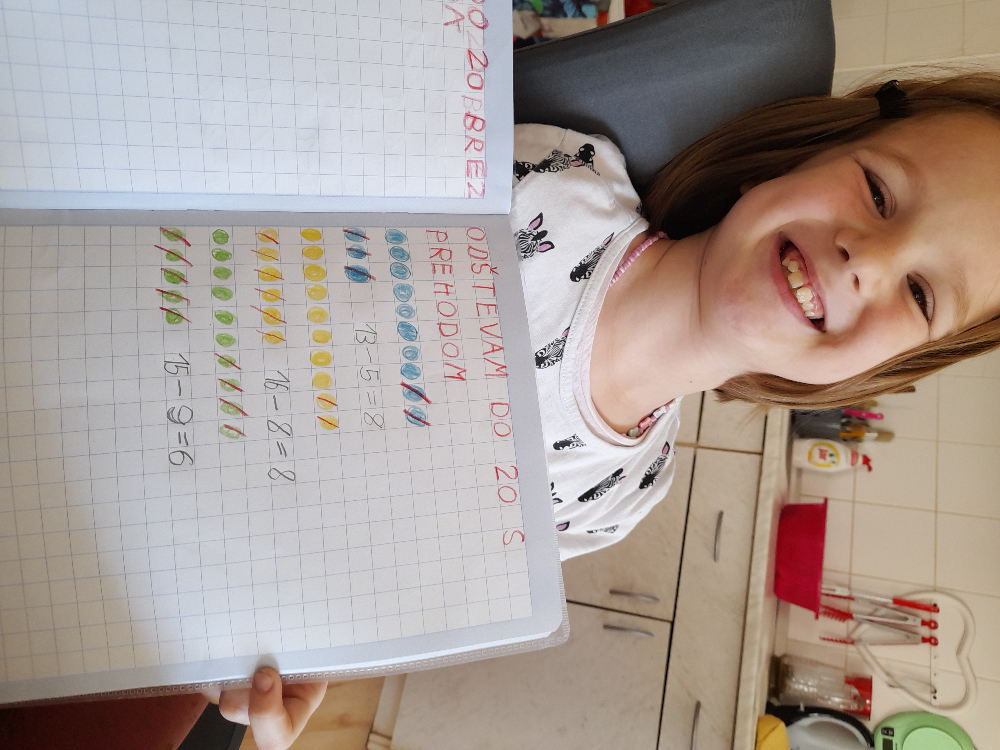 DO 20 BREZ
A
ODŠTEVAM DO 20 S
PREHODOM
13-5=8
16-8=8
15-9=6
Jar